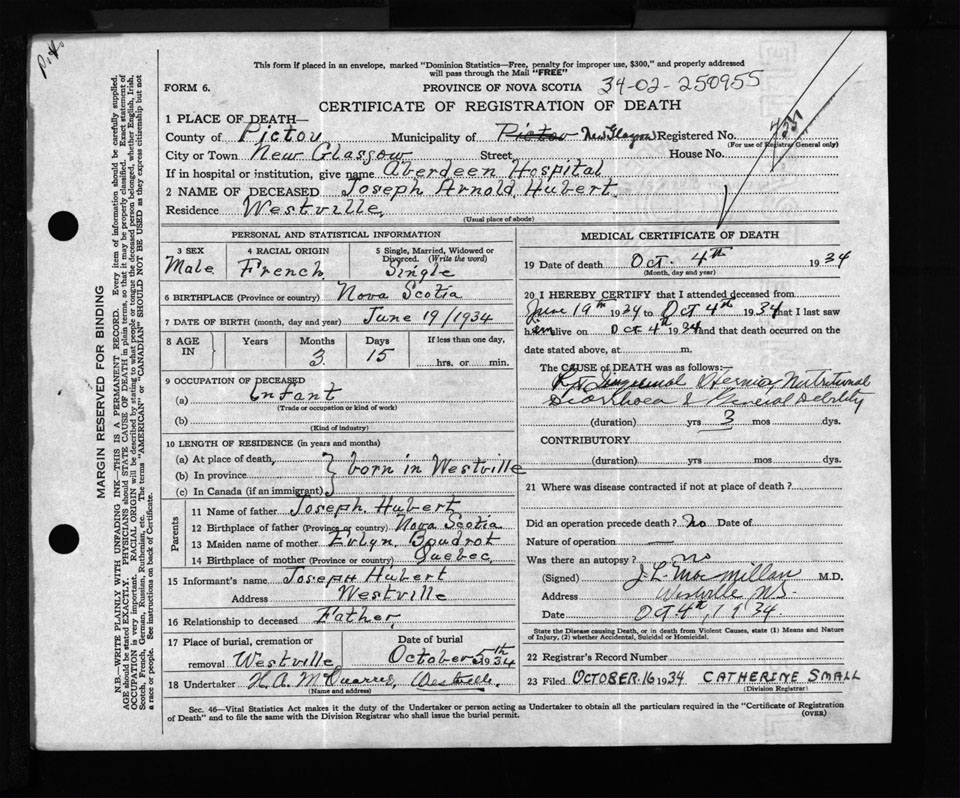 Pict
This form if placed in an envelope, marked "Dominion Statistics—Free, penalty for improper use, $300," and properly addressed
will pass through the Mail "FREE"
FORM 6.
PROVINCE OF NOVA SCOTIA 34-02-250955
CERTIFICATE OF REGISTRATION OF DEATH
1 PLACE OF DEATH—
County of Pictou Municipality of Pictou New Glasgow Registered No.
(For use of Registrar General only)
City or Town New Glasgow Street House No.
If in hospital or institution, give name Aberdeen Hospital
2 NAME OF DECEASED Joseph Arnold Hubert
Residence Westville
(Usual place of abode)
PERSONAL AND STATISTICAL INFORMATION
3 SEX Male
4 RACIAL ORIGIN French
5 Single, Married, Widowed or Divorced. (Write the word) Single
6 BIRTHPLACE (Province or country) Nova Scotia
7 DATE OF BIRTH (month, day and year) June 19/1934
8 AGE IN Years Months 3 Days 15 If less than one day, hrs. or min.
9 OCCUPATION OF DECEASED
(a) Infant
(Trade or occupation or kind of work)
(b)
(Kind of industry)
10 LENGTH OF RESIDENCE (in years and months)
(a) At place of death,
(b) In province born in Westville
(c) In Canada (if an immigrant)
Parents
11 Name of father Joseph Hubert
12 Birthplace of father (Province or country) Nova Scotia
13 Maiden name of mother Evlyn Boudrot
14 Birthplace of mother (Province or country) Quebec
15 Informant's name Joseph Hubert
Address Westville
16 Relationship to deceased Father
17 Place of burial, cremation or removal Westville
Date of burial October 5th 1934
18 Undertaker H.A. McQuarrie, Westville
(Name and address)
MEDICAL CERTIFICATE OF DEATH
19 Date of death Oct. 4th 1934
(Month, day and year)
20 I HEREBY CERTIFY that I attended deceased from
June 19th 1934 to Oct 4th 1934 that I last saw
him alive on Oct 4th 1934 and that death occurred on the
date stated above, at m.
The CAUSE OF DEATH was as follows:—
Rt Inguinal Hernia, Nutritional
Diarrhoea & General Debility
(duration) yrs 3 mos dys.
CONTRIBUTORY
(duration) yrs mos dys.
21 Where was disease contracted if not at place of death?
Did an operation precede death? No Date of
Nature of operation —
Was there an autopsy? no
(Signed) J L MacMillan M.D.
Address Westville N.S.
Date Oct 4th, 1934.
State the Disease causing Death, or in death from Violent Causes, state (1) Means and Nature
of Injury, (2) whether Accidental, Suicidal or Homicidal.
22 Registrar's Record Number
23 Filed OCTOBER 16 1934 CATHERINE SMALL
(Division Registrar)
Sec. 46—Vital Statistics Act makes it the duty of the Undertaker or person acting as Undertaker to obtain all the particulars required in the "Certificate of Registration
of Death" and to file the same with the Division Registrar who shall issue the burial permit.
(OVER)
MARGIN RESERVED FOR BINDING
N.B.—WRITE PLAINLY WITH UNFADING INK—THIS IS A PERMANENT RECORD. Every item of information should be carefully supplied.
AGE should be stated EXACTLY. PHYSICIANS should STATE CAUSE OF DEATH in plain terms, so that it may be properly classified. Exact statement of
OCCUPATION is very important. RACIAL ORIGIN will be described by stating to what people or tongue the deceased person belonged, whether English, Irish,
Scotch, French, German, Russian, Ruthenian, etc. The terms "AMERICAN" or "CANADIAN" SHOULD NOT BE USED as they express citizenship but not
a race or people. See instructions on back of Certificate.